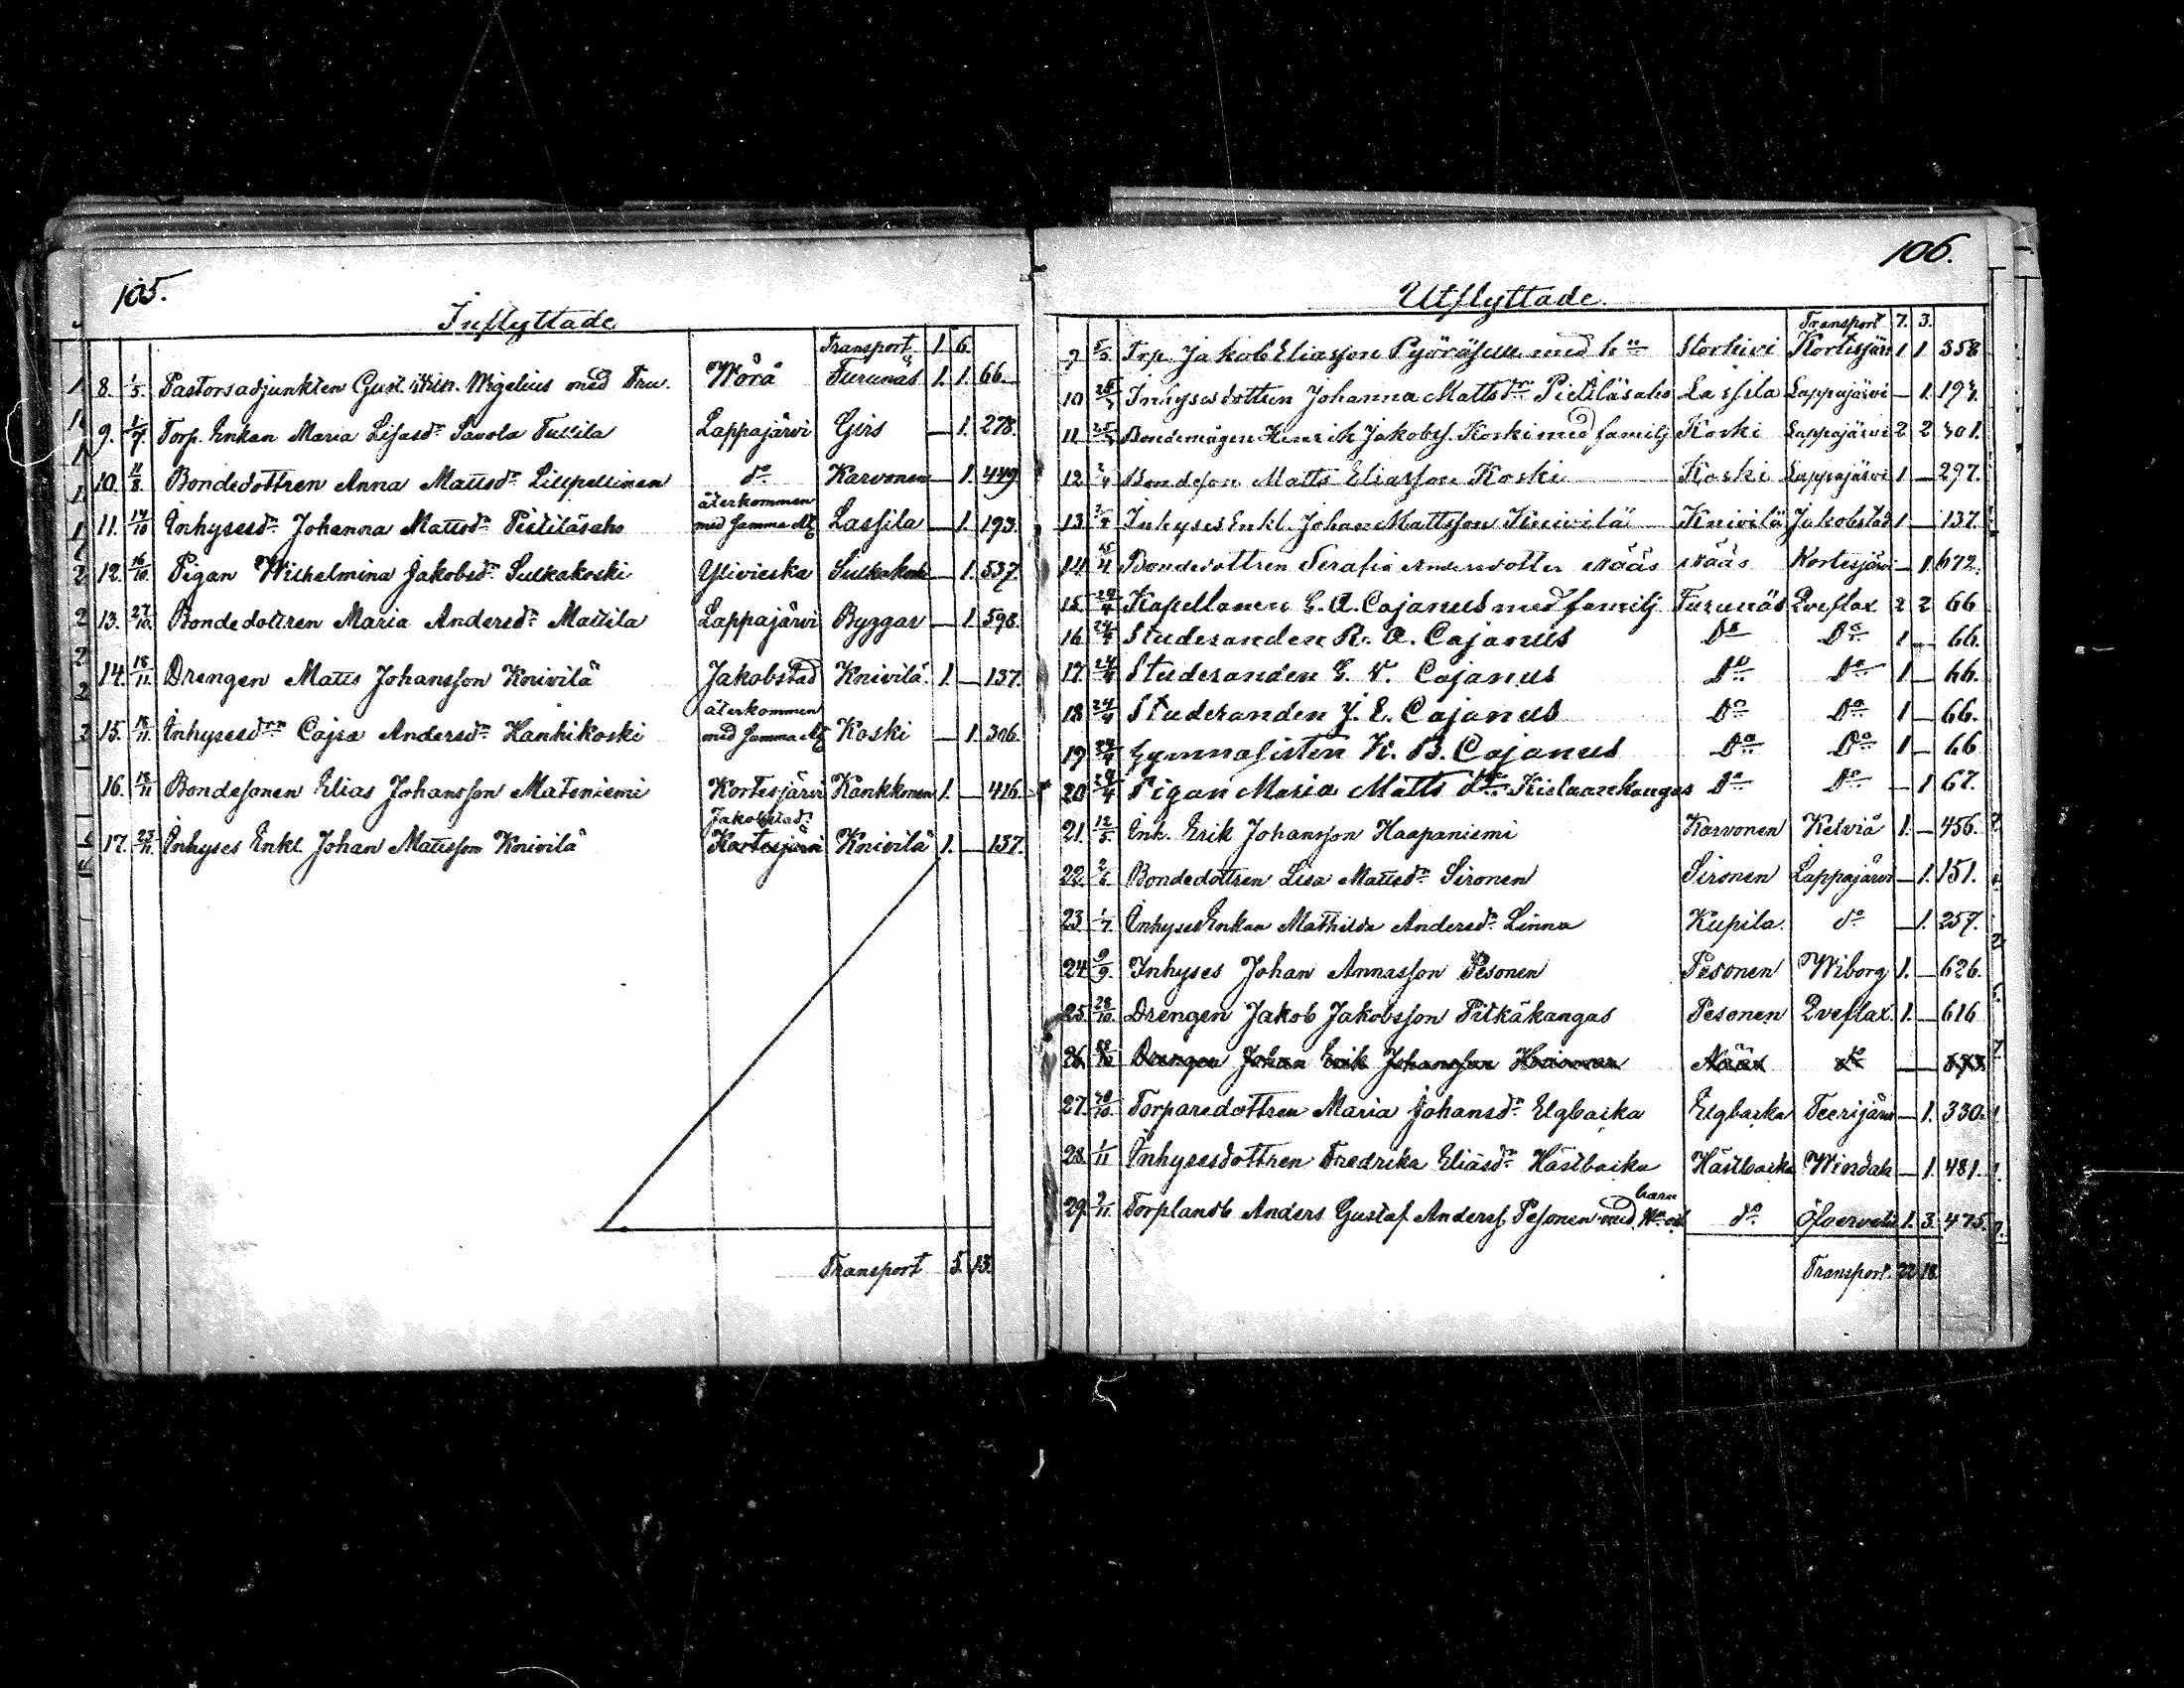 105.
Inflyttade
Transport 1. 6.
8. 1/5. Pastorsadjunkten Gust. Wilh. Wigelius med Fru. Wörå Turunäs 1. 1. 66.
9. 1/7. Torp. Enkan Maria Lisasdr Savola Lappajärvi Girs — 1. 278.
10. 11/8 Bondedottren Anna Mattsdr Lillpellinen do Karvonen — 1. 449.
återkommen
11. 14/10 Inhysesdr Johanna Mattsdr Pietiläsaho med samma Lassila — 1. 193.
12. 16/10. Pigan Wilhelmina Jakobsdr Sulkakoski Ylivieska Sulkakoski — 1. 537.
13. 27/10. Bondedottren Maria Andersdr Mattila Lappajärvi Byggar — 1. 598.
14. 18/11. Drengen Matts Johansson Knivilä Jakobstad Knivilä. 1. — 137.
återkommen
15. 18/11. Inhysesdrn Cajsa Andersdr Hanhikoski med samma Koski — 1. 306.
16. 18/11 Bondesonen Elias Johansson Mateniemi Kortesjärvi Kankkonen 1. — 416.
Jakobstad
17. 23/11. Inhyses Enkl. Johan Mattsson Knivilä Kortesjärvi Knivilä 1. — 137.
Transport 5. 13.
106.
Utflyttade.
Transport 7. 3.
9 Trp. Jakob Eliasson med hu Storkivi Kortesjärvi 1 1 358
10 Inhysesdottren Johanna Mattsdr Pietiläsaho Lassila Lappajärvi — 1. 193.
11 Bondemågen Henrik Jakobss. Koski med familj Koski Lappajärvi 2 2 301.
12 Bondeson Matts Eliasson Koski Koski Lappajärvi 1 — 297.
13 Inhyses Enkl. Johan Mattsson Knivilä Knivilä Jakobstad 1 — 137.
14 Bondedottren Serafia Andersdotter Nääs Nääs Kortesjärvi — 1 672.
15 24/4 Kapellanen G. A. Cajanus med familj Turunäs Qveflax 2 2 66
16 24/4 Studeranden R. A. Cajanus Do Do 1 — 66.
17. 24/4 Studeranden G. V. Cajanus Do Do 1 — 66.
18 24/4 Studeranden J. E. Cajanus Do Do 1 — 66.
19 24/4 Gymnasisten K. B. Cajanus Do Do 1 — 66
20 24/4 Pigan Maria Matts dr Kielaankangas Do Do — 1 67.
21. 12/5. Inh. Erik Johansson Haapaniemi Karvonen Kelviå 1. — 456.
22. 2/6 Bondedottren Lisa Mattsdr Sironen Sironen Lappajärvi — 1. 151.
23. 1/7. Inhyses Enkan Mathilda Andersdr Linna Kupila. do — 1. 257.
24. 9/9. Inhyses Johan Annasson Pesonen Pesonen Wiborg 1. — 626.
25. 28/10. Drengen Jakob Jakobsson Pitkäkangas Pesonen Qveflax. 1. — 616
26. Drengen Johan Erik Johansson Nääs do — 673
27. 30/10. Torparedottren Maria Johansdr Elgbacka Elgbacka Teerijärvi — 1. 330.
28. 1/11 Inhysesdottren Fredrika Eliasdr Hästbacka Hästbacka Windala — 1. 481.
barn
29. 9/11. Torplandb Anders Gustaf Anderss. Pesonen med do Öfvervetil 1. 3. 475.
Transport. 22 18